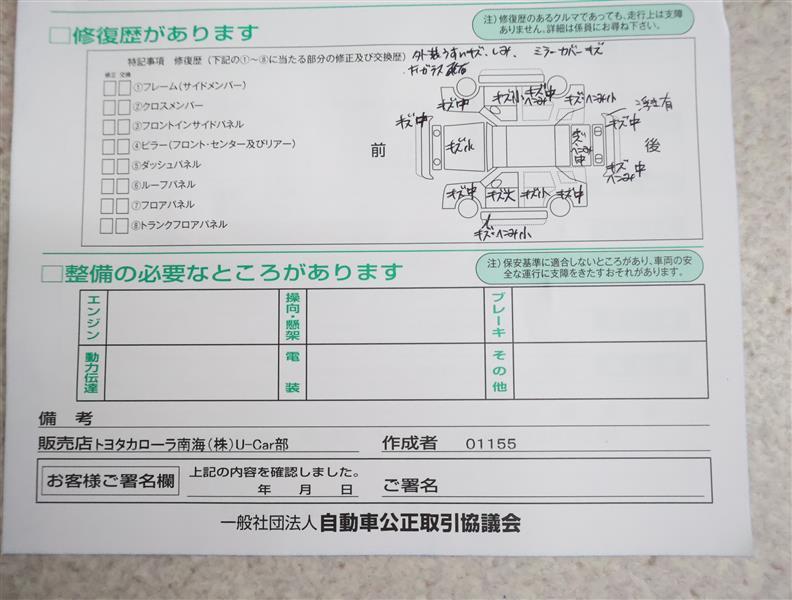 □修復歴があります
注）修復歴のあるクルマであっても、走行上は支障
ありません。詳細は係員にお尋ね下さい。
特記事項 修復歴（下記の①～⑧に当たる部分の修正及び交換歴）
外装うすいキズ、しみ、 ミラーカバーキズ
修正 交換
①フレーム（サイドメンバー）
②クロスメンバー
③フロントインサイドパネル
④ピラー（フロント・センター及びリアー）
⑤ダッシュパネル
⑥ルーフパネル
⑦フロアパネル
⑧トランクフロアパネル
前
後
キズ中
キズ中
キズ小
キズ中
ヘこみ
キズヘこみ小
キズ中
キズ小
キズヘこみ中
キズ
ヘこみ中
キズ中
キズ大
キズ小
キズ中
キズ・ヘこみ小
□整備の必要なところがあります
注）保安基準に適合しないところがあり、車両の安
全な運行に支障をきたすおそれがあります。
エンジン
操向・懸架
ブレーキ
動力伝達
電装
その他
備考
販売店トヨタカローラ南海（株）U-Car部
作成者 01155
お客様ご署名欄
上記の内容を確認しました。
年 月 日
ご署名
一般社団法人 自動車公正取引協議会